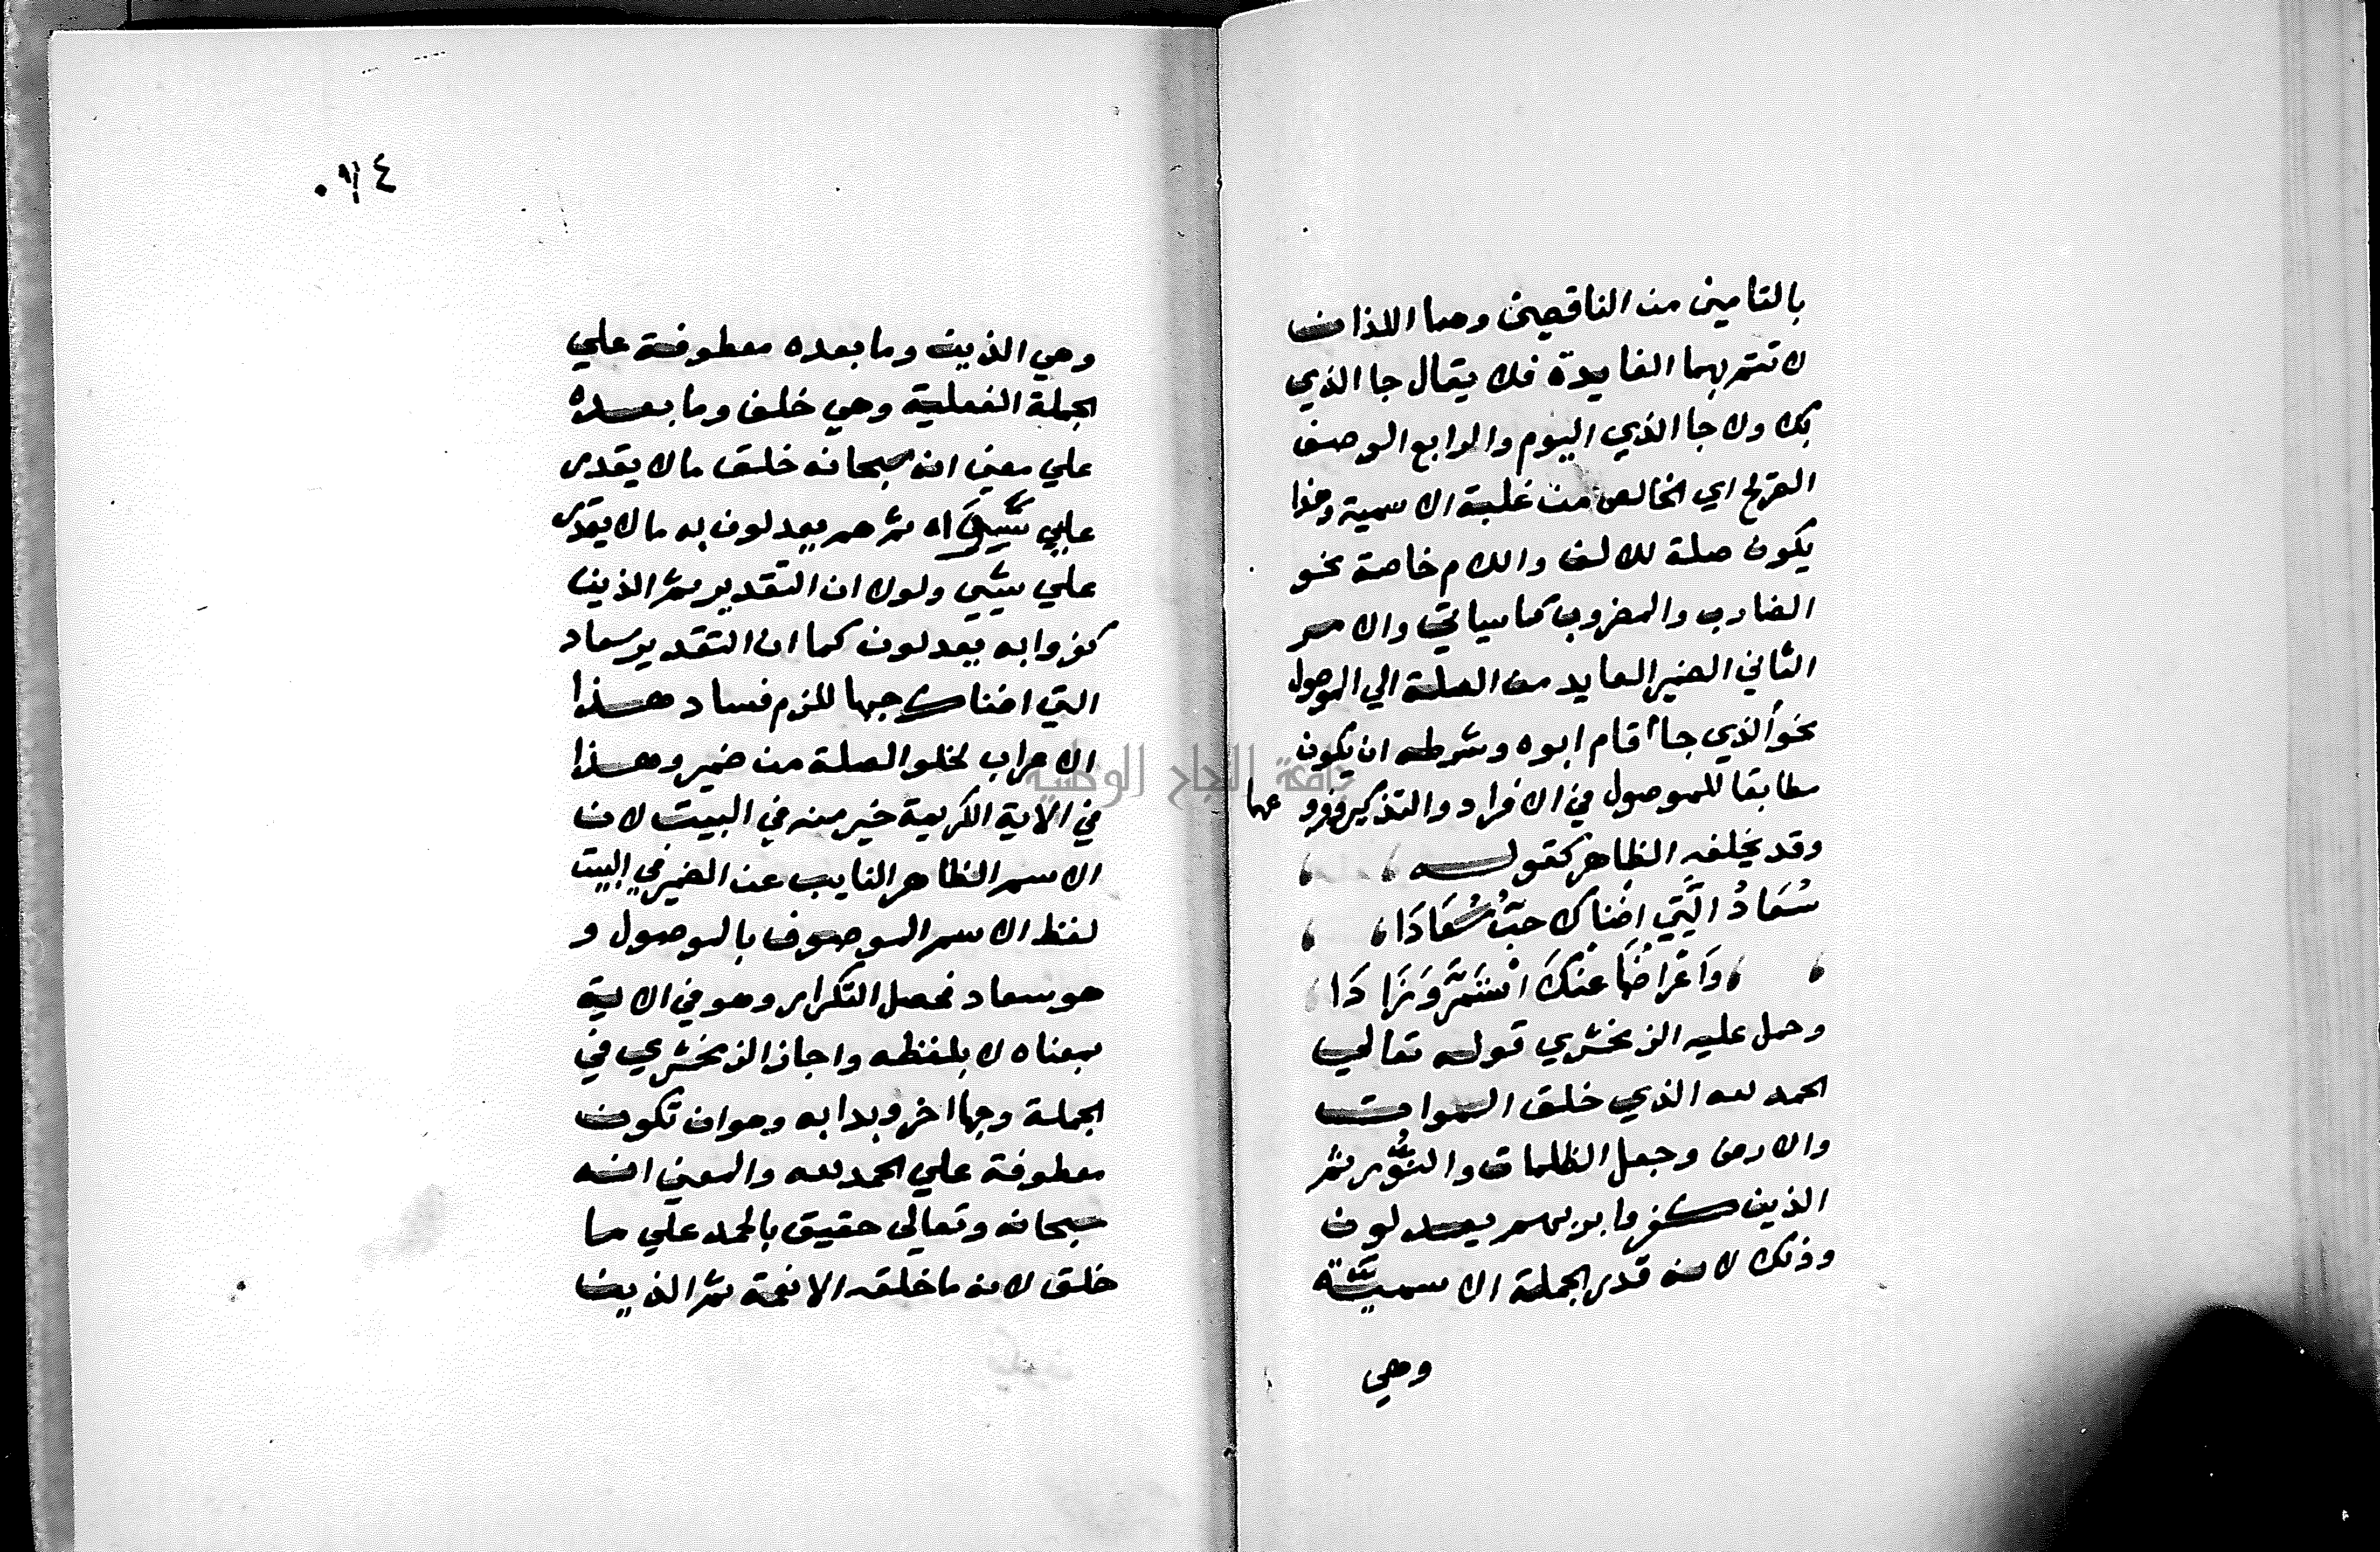 بالتامين من الناقصين وهما اللذان
لا تتم بهما الفايدة فلا يقال جا الذي
بك ولا جا الذي اليوم والرابع الوصف
الصريح اي الخالص من غلبة الاسمية وهذا
يكون صلة للالف واللام خاصة نحو
الضارب والمضروب كما سياتي والامر
الثاني الضمير العايد من الصلة الي الموصول
نحو الذي جا اقام ابوه وشرطه ان يكون
مطابقا للموصول في الافراد والتذكير وفروعهما
وقد يخلفه الظاهر كقوله
سُعَادُ الَّتِي اضناك حبُّ سُعَادَا
وَاعْرَاضُهَا عَنْكَ اسْتَمَرَّ وَزَادَا
وحمل عليه الزمخشري قوله تعالي
الحمد لله الذي خلق السموات
والارض وجعل الظلمات والنُّور ثم
الذين كفروا بربهم يعدلون
وذلك لانه قدر الجملة الاسميّة
وهي
٠٩٤
وهي الذين وما بعده معطوفة علي
الجملة الفعلية وهي خلق وما بعده
علي معني انه سبحانه خلق ما لا يقدر
علي شيئ سواه ثم هم يعدلون به ما لا يقدر
علي شيئ ولولا ان التقدير ثم الذين
كفروا به يعدلون كما ان التقدير سعاد
التي اضناك حبها للزم فساد هذا
الاعراب لخلو الصلة من ضمير وهذا
في الاية الكريمة خير منه في البيت لان
الاسم الظاهر النايب عن الضمير في البيت
لفظ الاسم الموصوف بالموصول و
هو سعاد فحصل التكرار وهو في الاية
بمعناه لا بلفظه واجاز الزمخشري في
الجملة وجها اخر وبدا به وهو ان تكون
معطوفة علي الحمد لله والمعني انه
سبحانه وتعالى حقيق بالحمد علي ما
خلق لانه ما خلقه الا نعمة ثم الذين
جامعة النجاح الوطنية